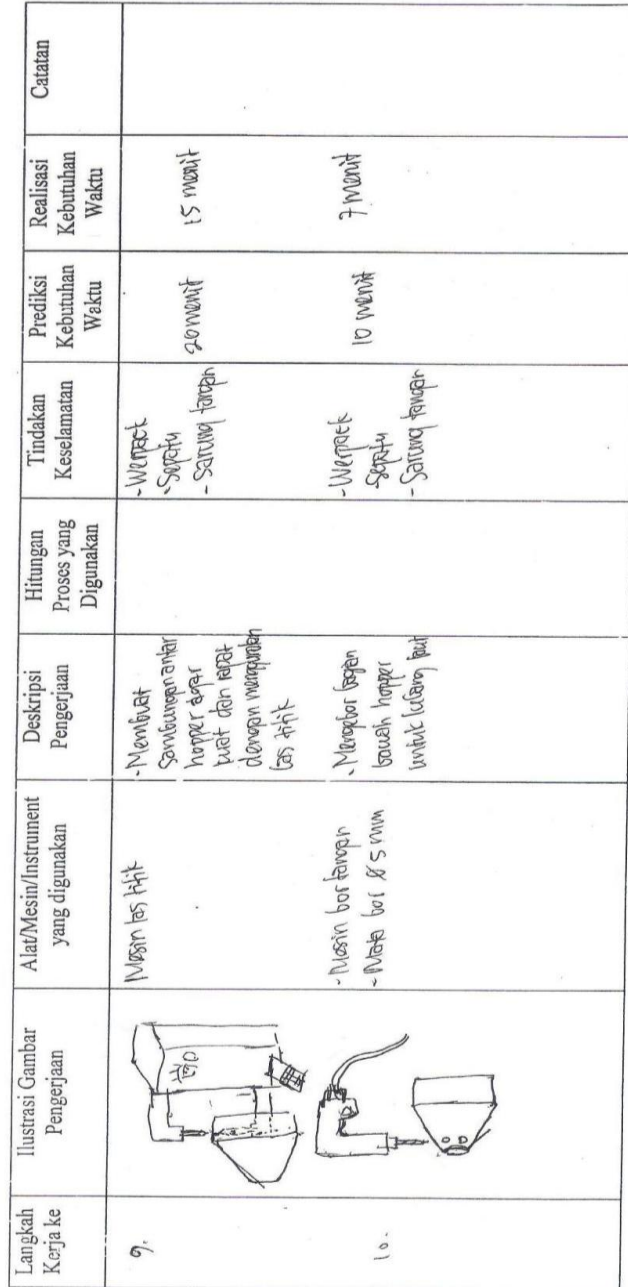 Langkah
Kerja ke
Ilustrasi Gambar
Pengerjaan
Alat/Mesin/Instrument
yang digunakan
Deskripsi
Pengerjaan
Hitungan
Proses yang
Digunakan
Tindakan
Keselamatan
Prediksi
Kebutuhan
Waktu
Realisasi
Kebutuhan
Waktu
Catatan
9.
Mesin las titik
- Membuat
sambungan antar
hopper agar
kuat dan rapat
dengan menggunakan
las titik
- Werpack
- Sepatu
- Sarung tangan
20 menit
15 menit
10.
- Mesin bor tangan
- Mata bor Ø 5 mm
- Mengebor bagian
bawah hopper
untuk lubang baut
- Werpack
- Sepatu
- Sarung tangan
10 menit
7 menit